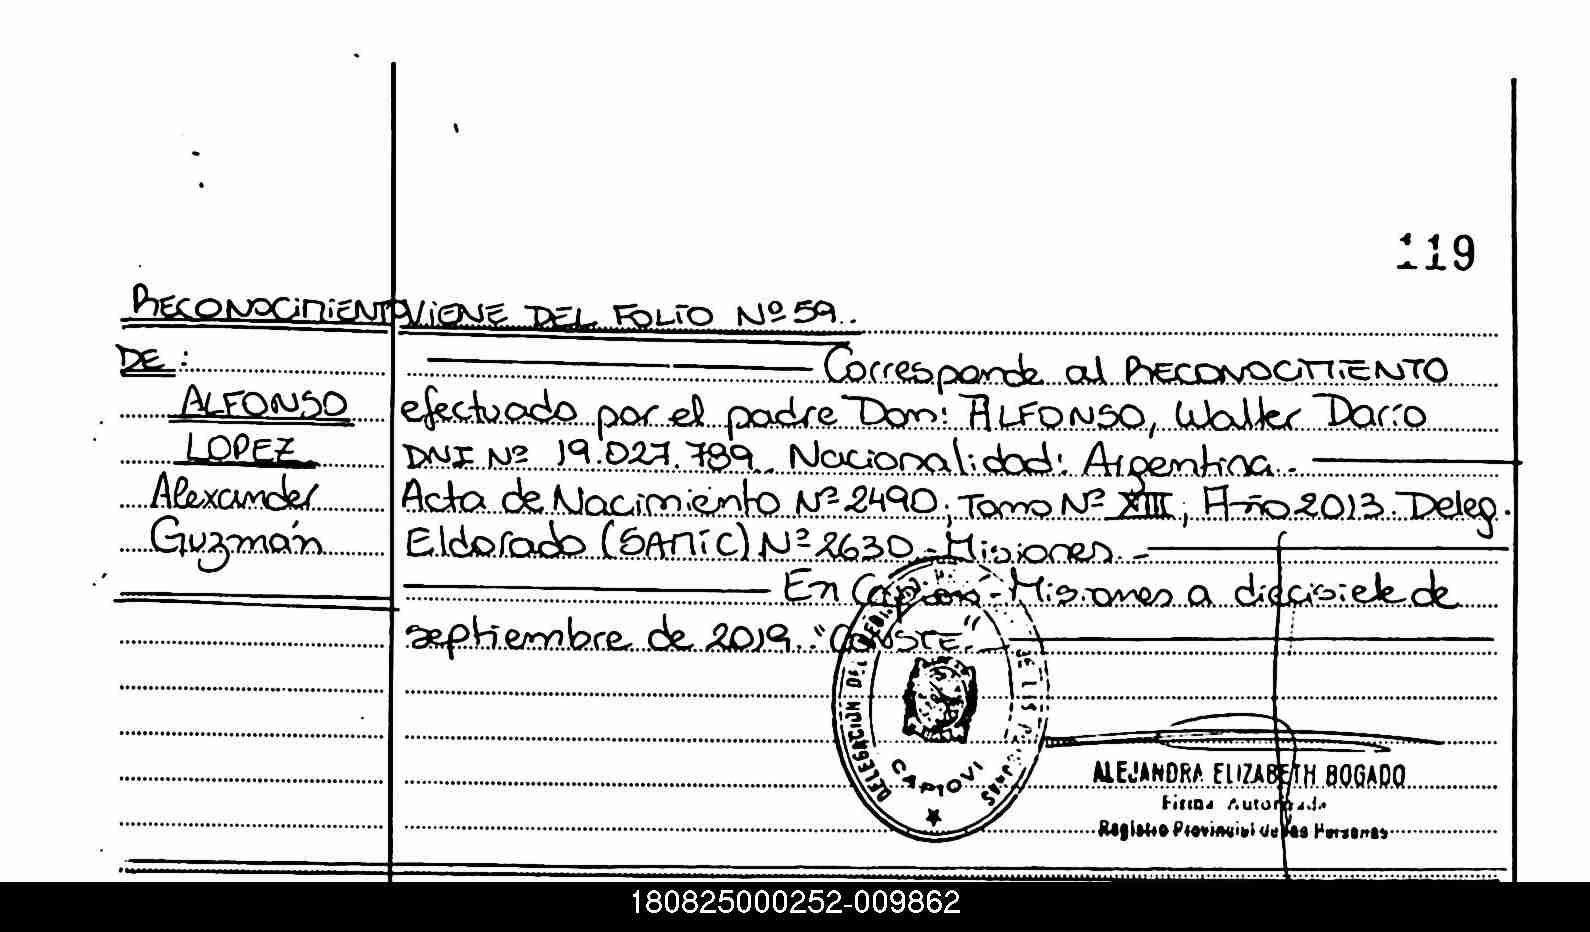 119
RECONOCIMIENTO VIENE DEL FOLIO Nº 59.
DE: Corresponde al RECONOCIMIENTO
ALFONSO efectuado por el padre Don: ALFONSO, Walter Darío
LOPEZ DNI Nº 19.027.789. Nacionalidad: Argentina.-
Alexander Acta de Nacimiento Nº 2490; Tomo Nº XIII; Año 2013. Deleg.
Guzmán Eldorado (SAMIC) Nº 2630 - Misiones.-
En Capiovi - Misiones a diecisiete de
septiembre de 2019. "CONSTE".-
DELEGACION DEL REGISTRO DE LAS PERSONAS
CAPIOVI
ALEJANDRA ELIZABETH BOGADO
Firma Autorizada
Registro Provincial de las Personas
180825000252-009862